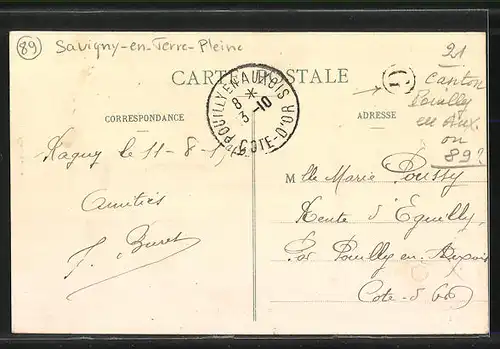 89 Savigny-en-Terre-Pleine
CARTE POSTALE
POUILLY EN AUXOIS
8 *
3 -10
COTE-D'OR
CORRESPONDANCE
ADRESSE
21
canton
Pouilly
en Aux.
ou
89?
le 11-8-
Amitiés
Melle Marie Poussy
d'Eguilly
Par Pouilly-en-Auxois
Cote-d'Or